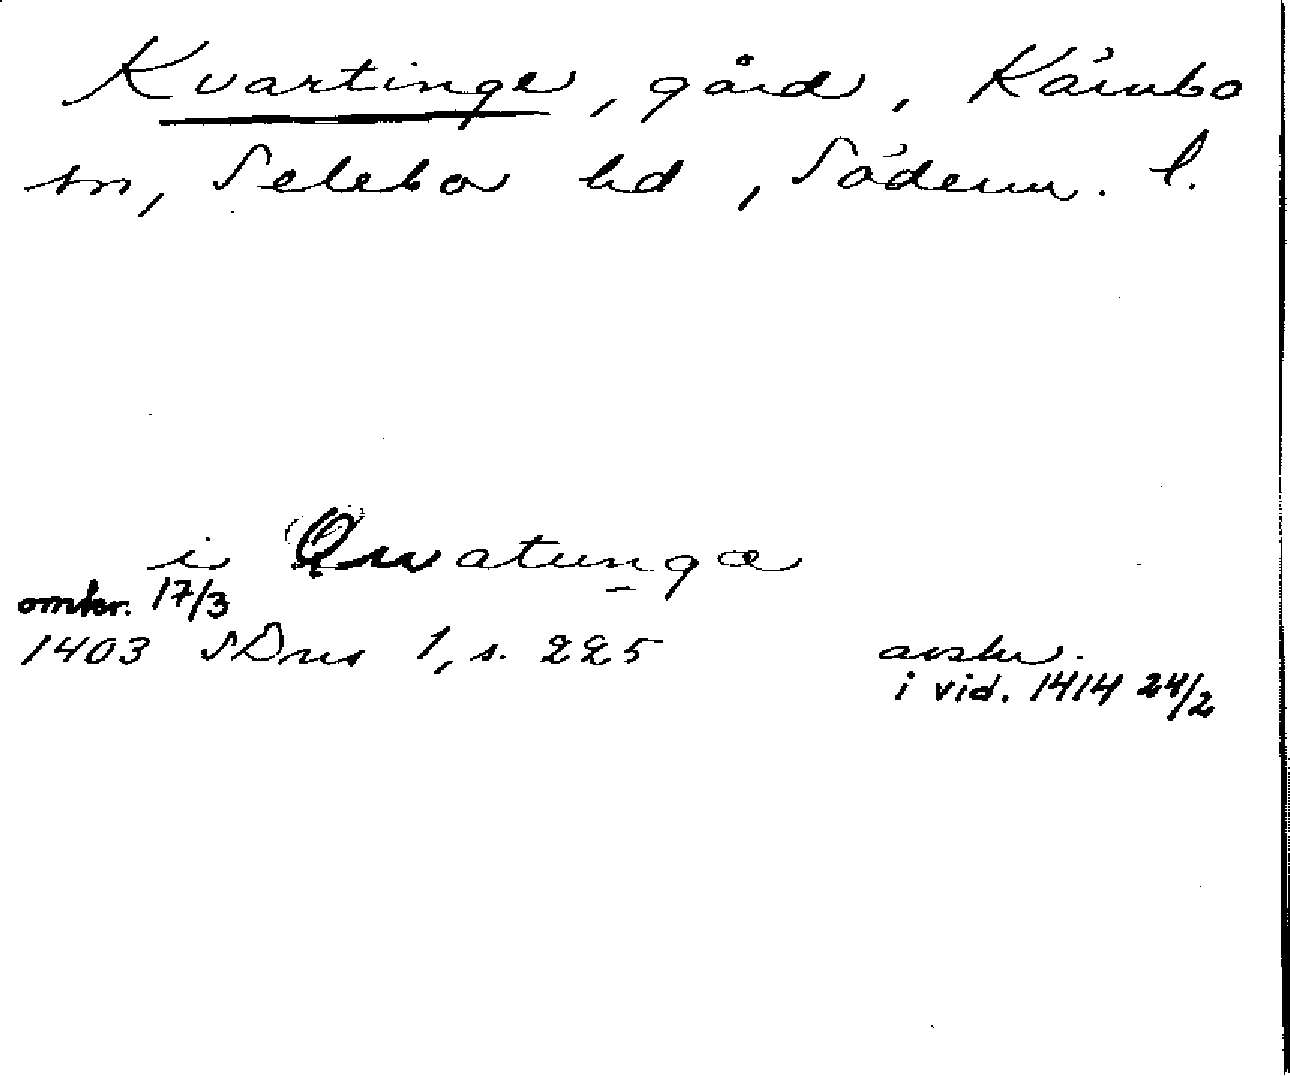 Kvartinge, gård, Kärnbo
sn, Selebo hd, Söderm. l.
i Qwatunga
omkr. 17/3
1403 SDns 1, s. 225 avskr.
i vid. 1414 24/2